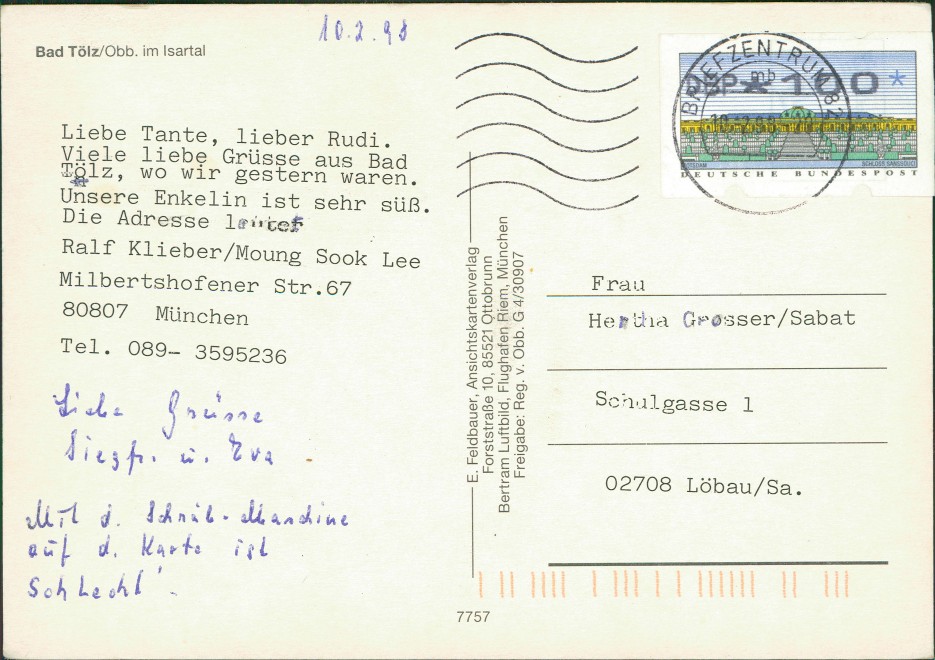 10.2.98
Bad Tölz/Obb. im Isartal
Liebe Tante, lieber Rudi.
Viele liebe Grüsse aus Bad
Tölz, wo wir gestern waren.
Unsere Enkelin ist sehr süß.
Die Adresse lautet
Ralf Klieber/Moung Sook Lee
Milbertshofener Str.67
80807 München
Tel. 089- 3595236
Liebe Grüsse
Siegfr. u. Eva
Mit d. Schreib-Maschine
auf d. Karte ist
Schlecht.
E. Feldbauer, Ansichtskartenverlag
Forststraße 10, 85521 Ottobrunn
Bertram Luftbild, Flughafen Riem, München
Freigabe: Reg. v. Obb. G 4/30907
7757
BRIEFZENTRUM 82
mb
DBP * 100 *
SCHLOSS SANSSOUCI
DEUTSCHE BUNDESPOST
Frau
Hertha Grosser/Sabat
Schulgasse 1
02708 Löbau/Sa.